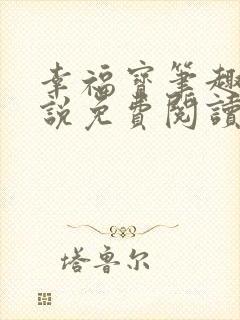 幸福寶筆趣
說免費閱讀
塔魯尔